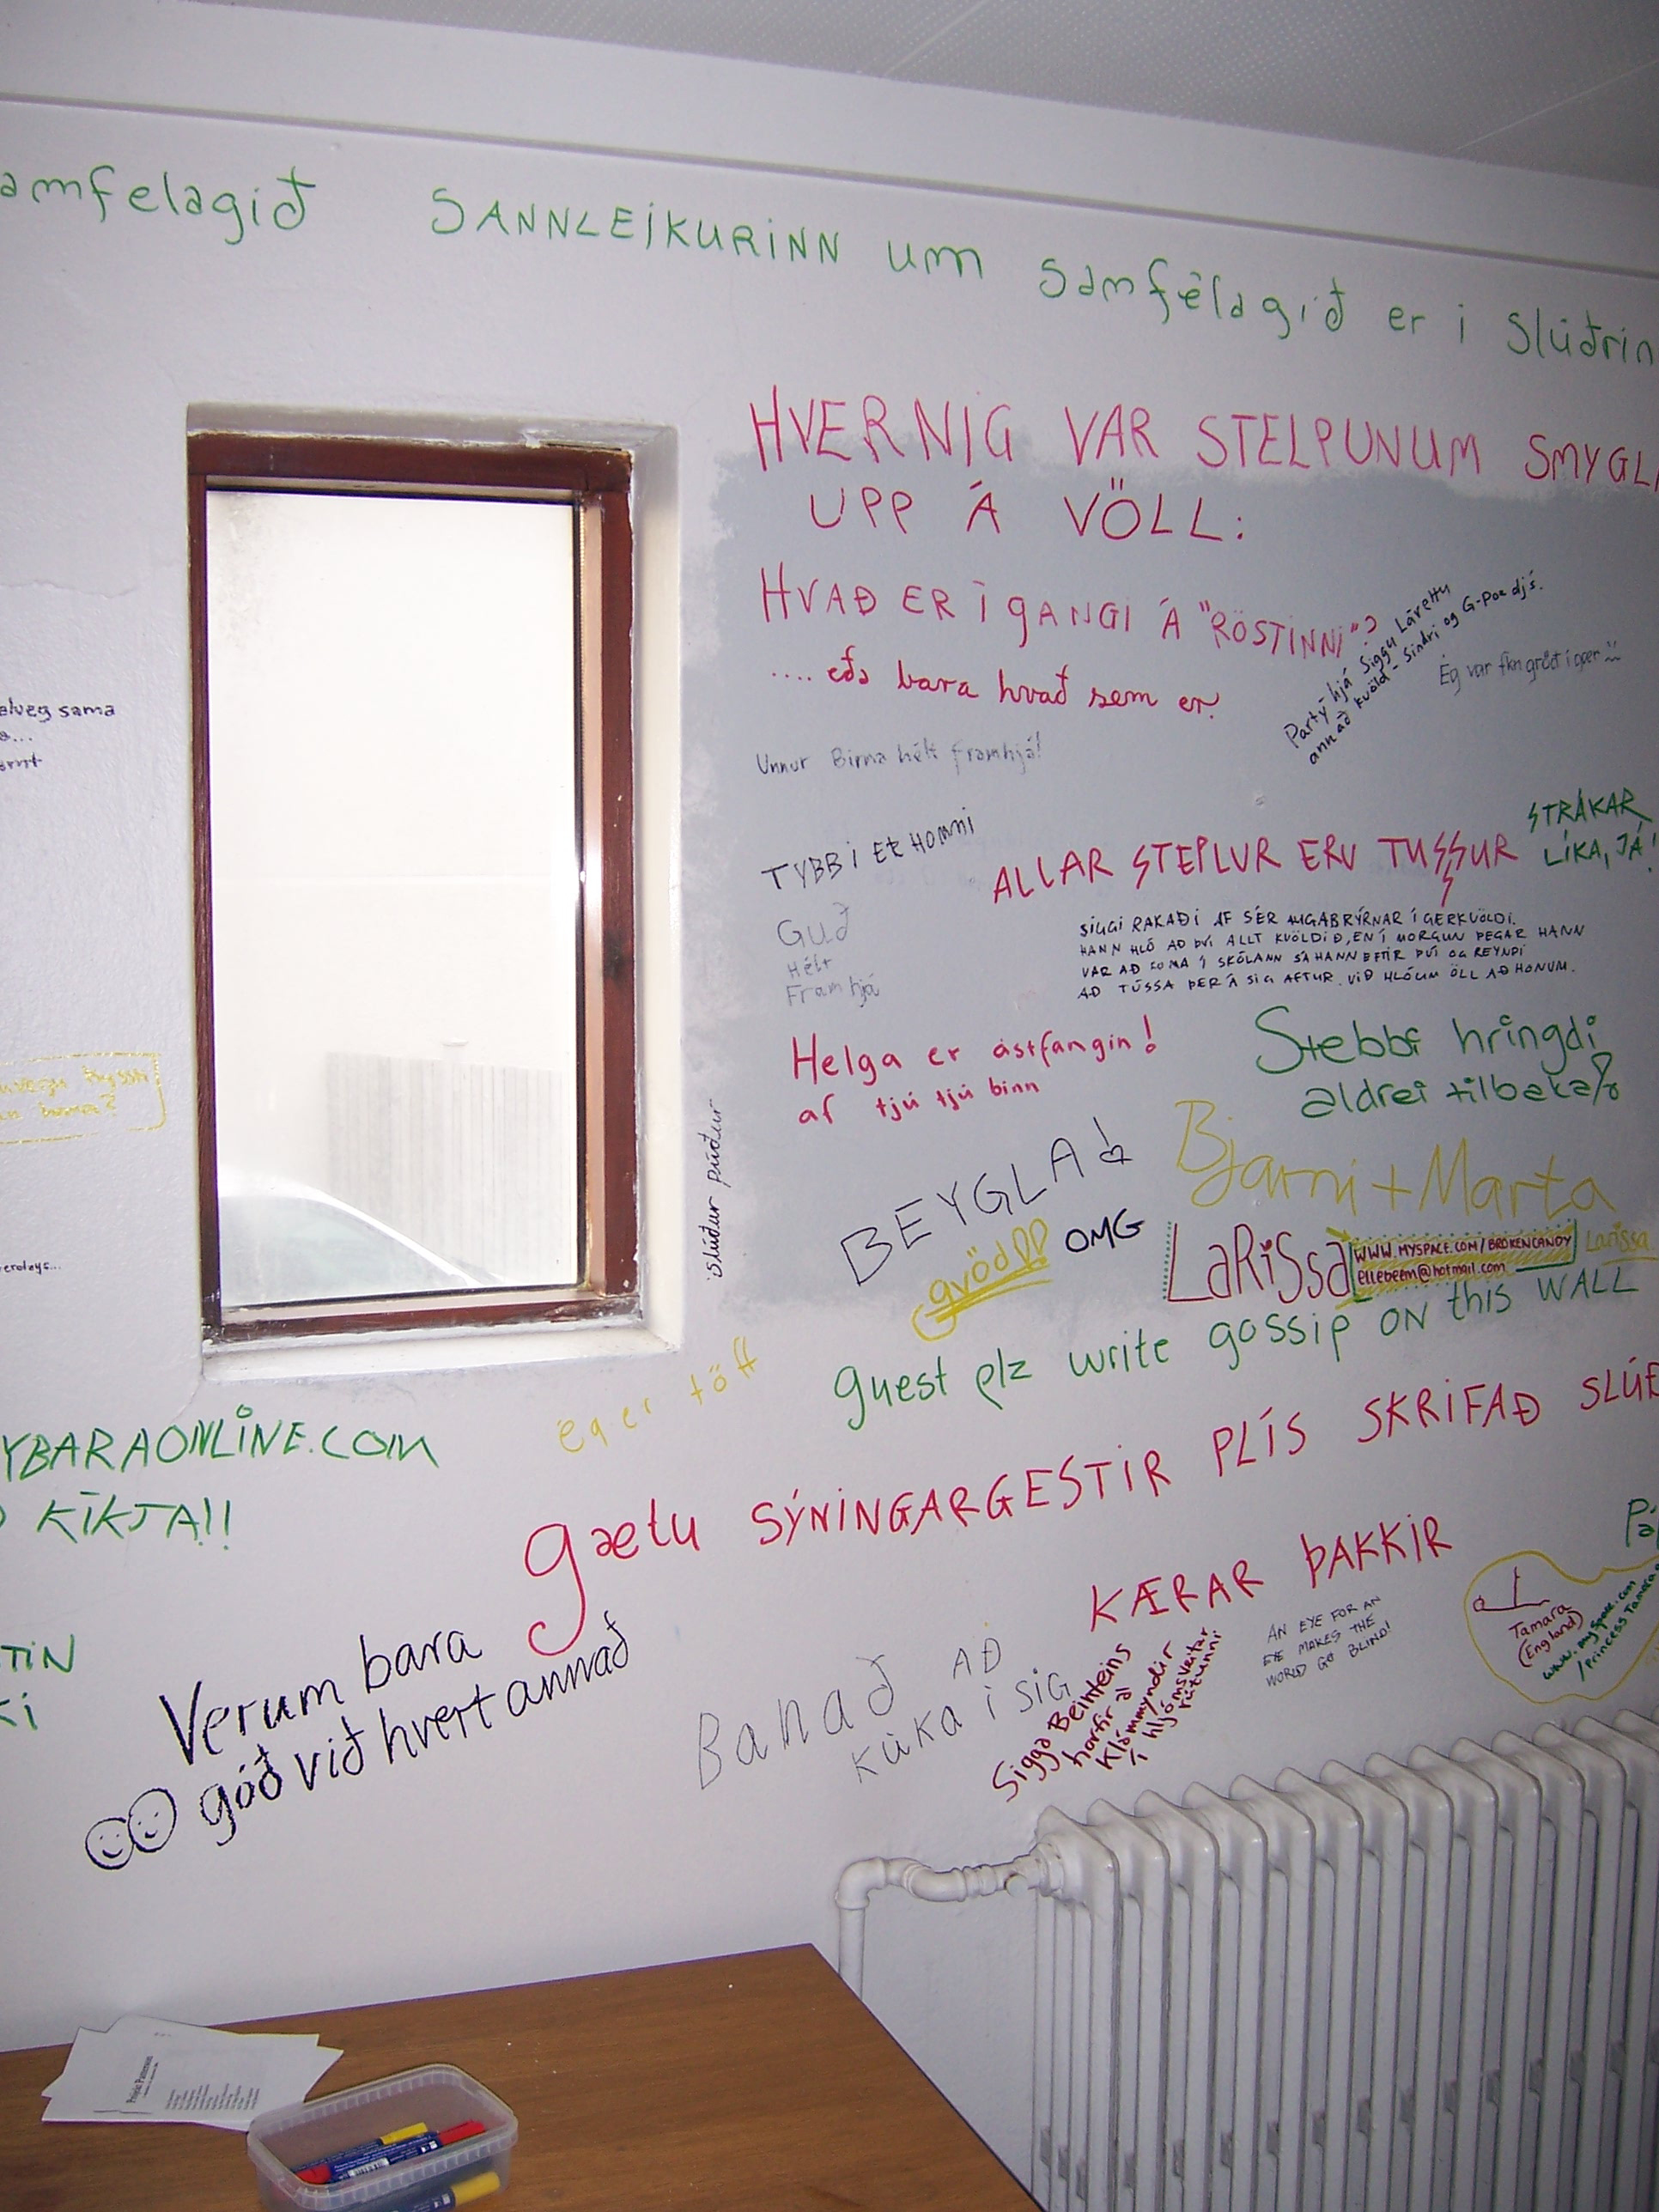 amfelagið SANNLEIKURINN um samfélagið er i Slúðrin
HVERNIG VAR STELPUNUM SMYGL
UPP Á VÖLL:
HVAÐ ER Í GANGI Á "RÖSTINNI"?
.... eða bara hvað sem er.
Party hjá Siggu Lárettu
annað kvöld - Sindri og G-Poe djs.
Ég var fkn grót í oper
Unnur Birna hélt framhjá!
elveg sama
TYBBI ER HOMMI
ALLAR STEPLUR ERU TUSSUR
STRÁKAR
LÍKA, JÁ!
Guð
Hélt
Framhjá
SIGGI RAKAÐI AF SÉR AUGABRÝRNAR Í GERKVÖLDI.
HANN HLÓ AÐ ÞVÍ ALLT KVÖLDIÐ, EN Í MORGUN ÞEGAR HANN
VAR AÐ KOMA Í SKÓLANN SÁ HANN EFTIR ÞVÍ OG REYNDI
AÐ TÚSSA ÞER Á SIG AFTUR. VIÐ HLÓUM ÖLL AÐ HONUM.
Helga er ástfangin!
af tjú tjú binn
Stebbi hringdi
aldrei tilbaka
slúður púður
BEYGLA!
gvöð!!! OMG
Bjarni + Marta
LaRiSsa
WWW.MYSPACE.COM/BROKENCANDY
ellebeem@hotmail.com
Larissa
guest plz write gossip ON this WALL
ég er töff
YBARAONLINE.COM
KÍKJA!!
gætu SÝNINGARGESTIR PLÍS SKRIFAÐ SLÚÐ
KÆRAR ÞAKKIR
Verum bara
góð við hvert annað
TIN
KI
Banað AÐ
KÚKA Í SIG
Sigga Beinteins
horfir á
Klámmyndir
í hljómsveitar
rútunni
AN EYE FOR AN
EYE MAKES THE
WORLD GO BLIND!
Tamara
(England)
www.myspace.com
/Princess Tamara